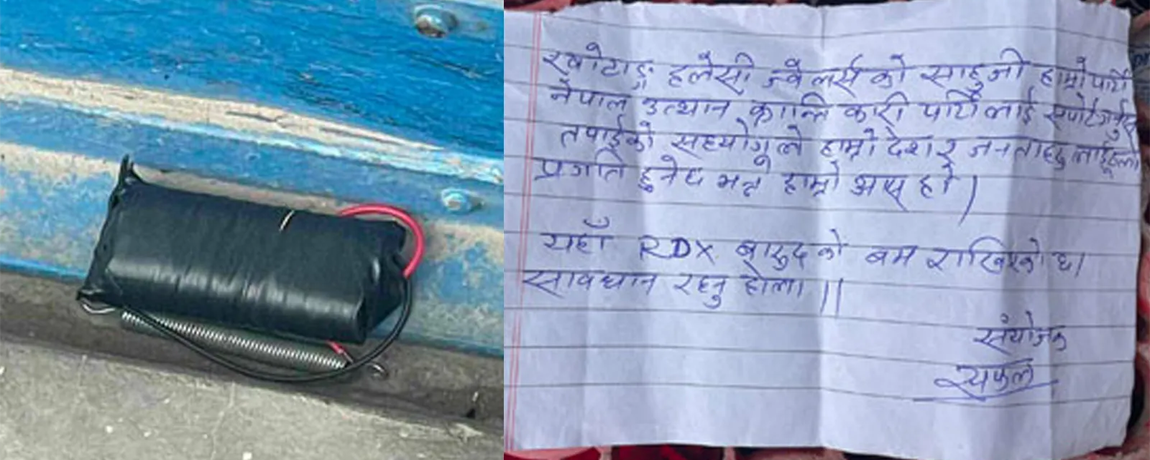 खोटाङ हलेसी ज्वेलर्स को साहुजी हाम्रो पार्टी
नेपाल उत्थान क्रान्ति कारी पार्टी लाई
तपाईको सहयोगले हाम्रो देश र जनताहरु लाई
प्रगति हुनेछ भन्ने हाम्रो आस हो।
यहाँ RDX बारुद को बम राखिएको छ।
सावधान रहनु होला।।
संयोजक